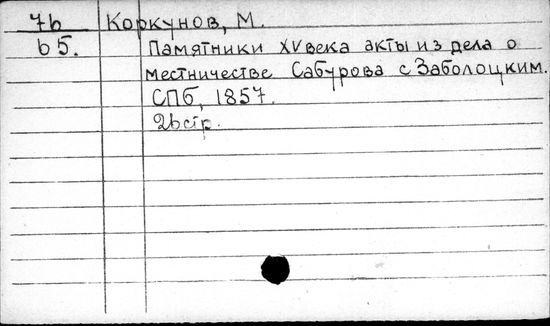 76 Коркунов, М.
65. Памятники XV века акты из дела о
местничестве Сабурова с Заболоцким.
СПб, 1857.
26 стр.